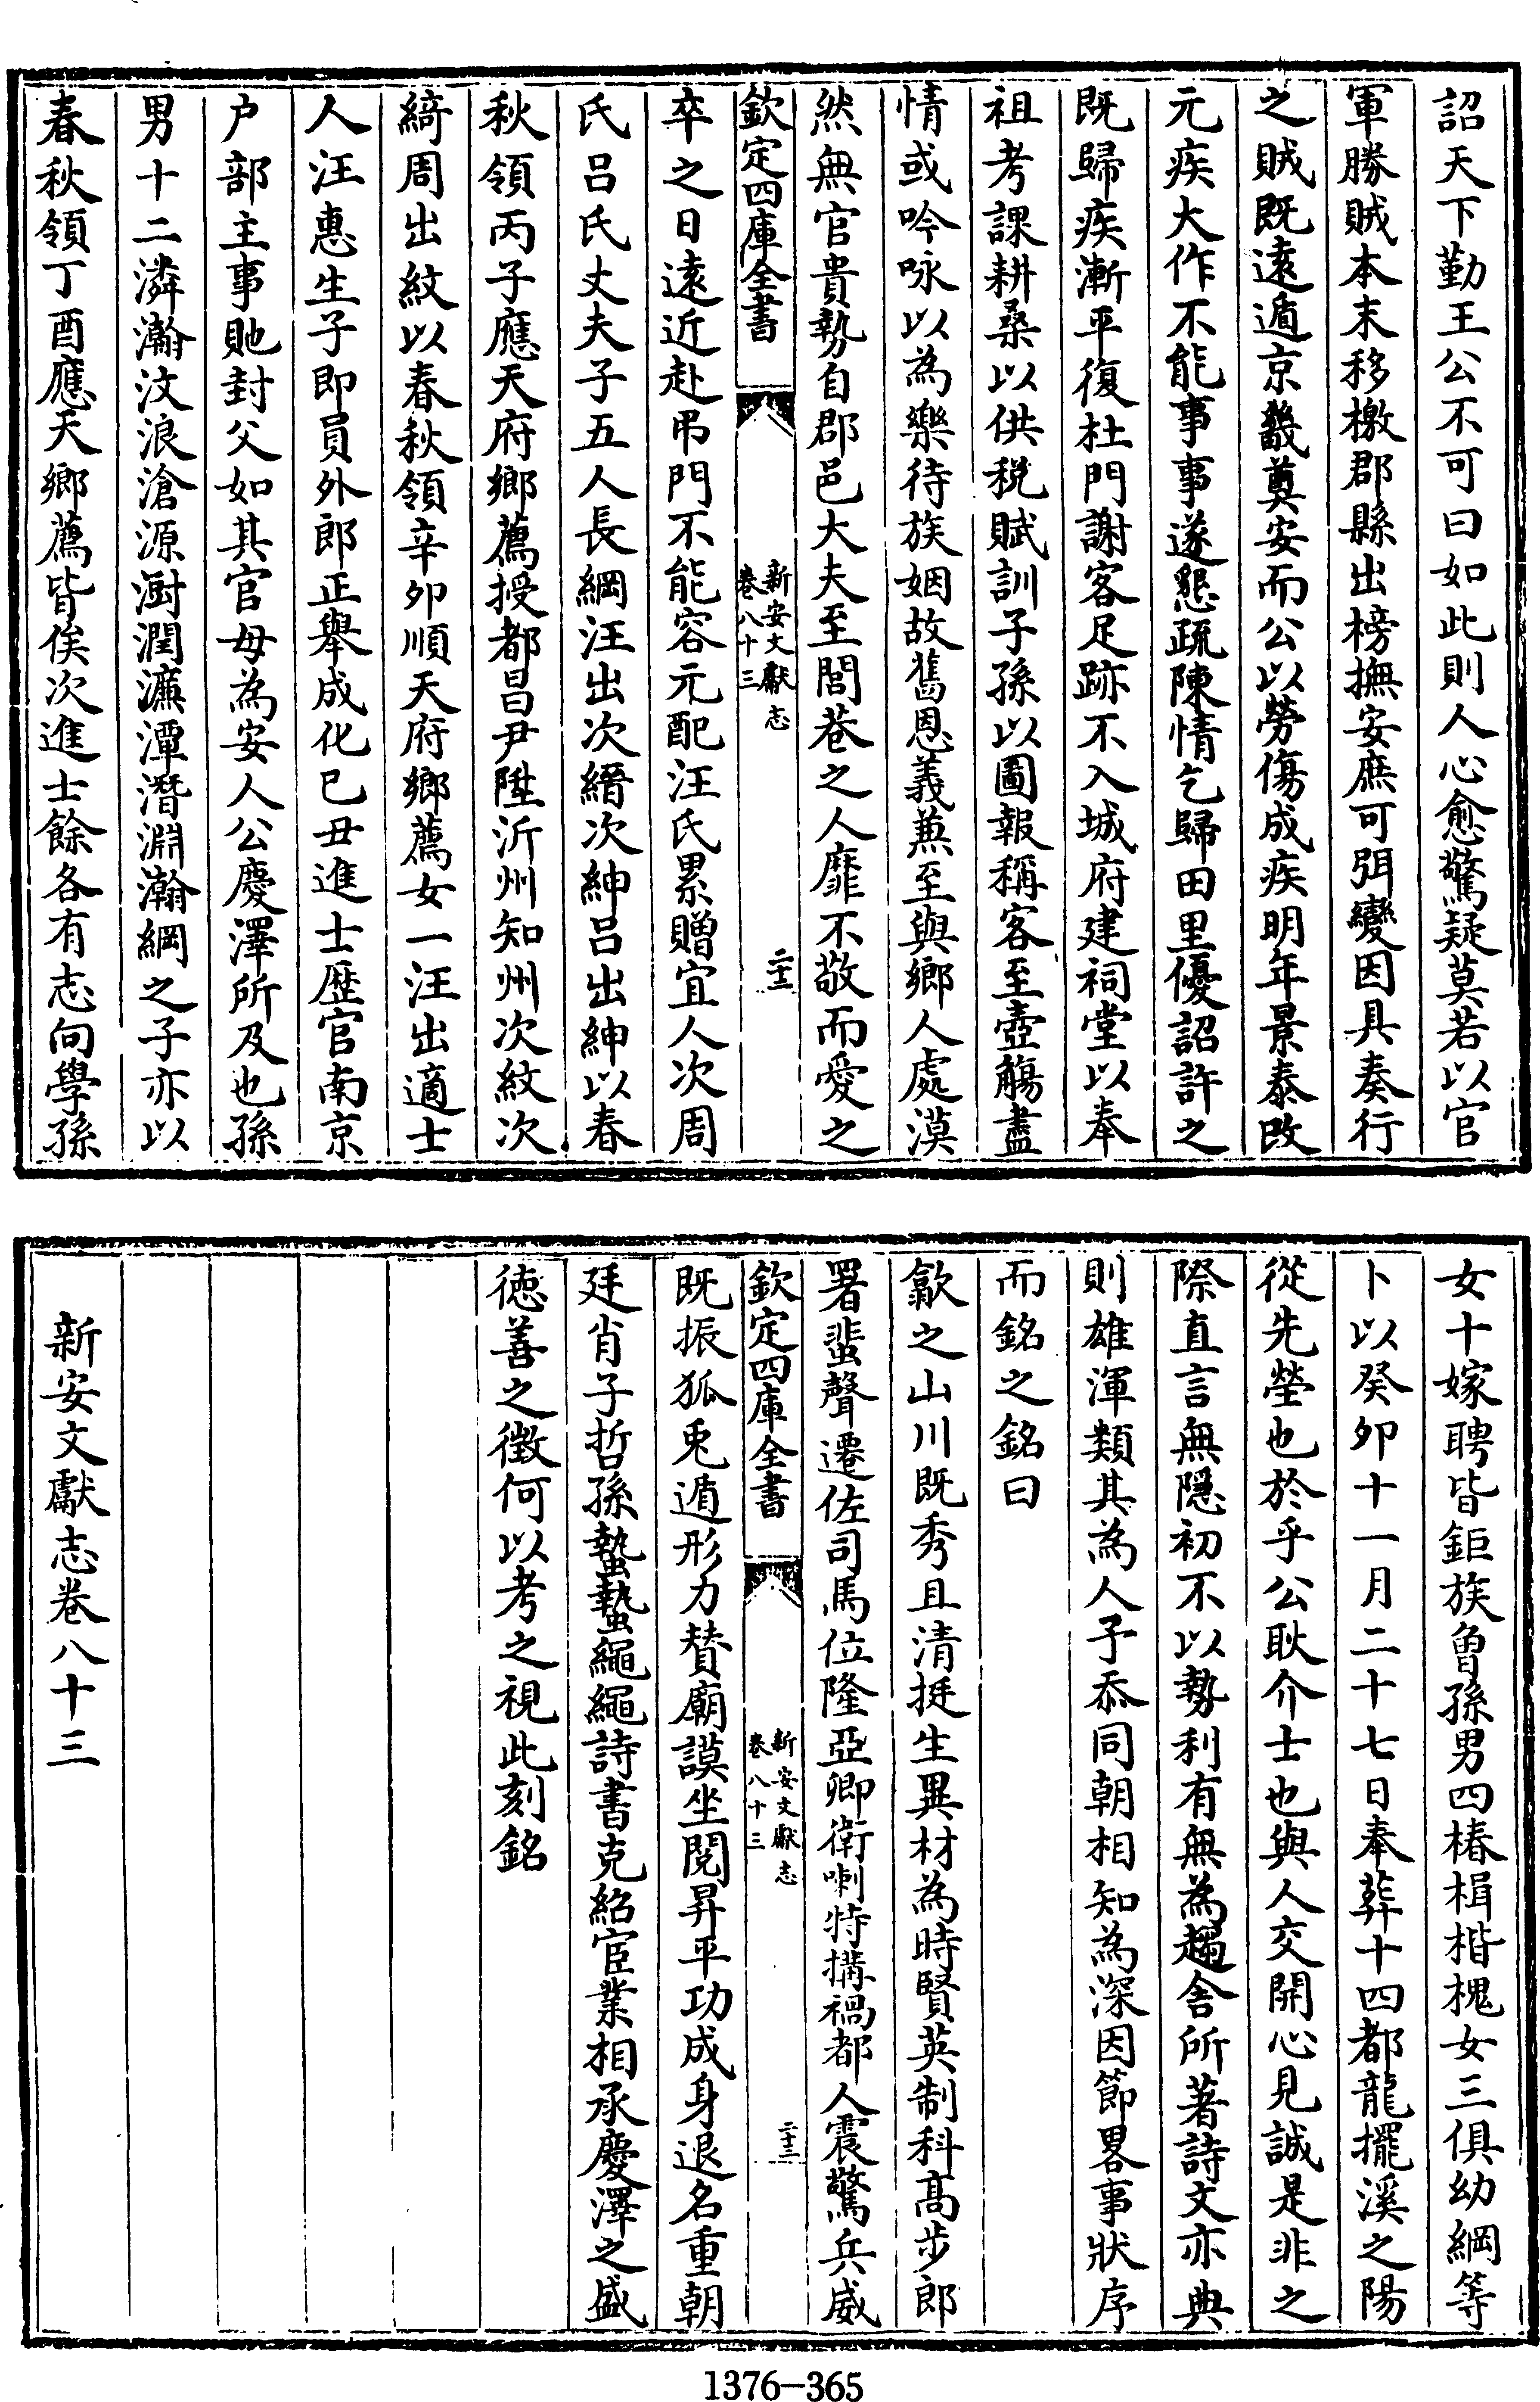 詔天下勤王公不可曰如此則人心愈驚疑莫若以官
軍勝賊本末移檄郡縣出榜撫安庶可弭變因具奏行
之賊既遠遁京畿奠安而公以勞傷成疾明年景泰改
元疾大作不能事事遂懇疏陳情乞歸田里優詔許之
既歸疾漸平復杜門謝客足跡不入城府建祠堂以奉
祖考課耕桑以供税賦訓子孫以圖報稱客至壺觴盡
情或吟咏以為樂待族姻故舊恩義兼至與鄉人處漠
然無官貴勢自郡邑大夫至閭巷之人靡不敬而愛之
欽定四庫全書
新安文獻志
卷八十三
二十二
卒之日遠近赴弔門不能容元配汪氏累贈宜人次周
氏吕氏丈夫子五人長綱汪出次縉次紳吕出紳以春
秋領丙子應天府鄉薦授都昌尹陞沂州知州次紋次
綺周出紋以春秋領辛卯順天府鄉薦女一汪出適士
人汪惠生子即員外郎正舉成化已丑進士歷官南京
户部主事貤封父如其官母為安人公慶澤所及也孫
男十二潾瀚汶浪滄源澍潤濂潭潛淵瀚綱之子亦以
春秋領丁酉應天鄉薦皆俟次進士餘各有志向學孫
女十嫁聘皆鉅族曾孫男四椿楫楷槐女三俱幼綱等
卜以癸卯十一月二十七日奉葬十四都龍擺溪之陽
從先塋也於乎公耿介士也與人交開心見誠是非之
際直言無隱初不以勢利有無為趨舍所著詩文亦典
則雄渾類其為人予忝同朝相知為深因節畧事狀序
而銘之銘曰
歙之山川既秀且清挺生異材為時賢英制科高步郎
署蜚聲遷佐司馬位隆亞卿衛喇特搆禍都人震驚兵威
欽定四庫全書
新安文獻志
卷八十三
二十三
既振狐兎遁形力賛廟謨坐閱昇平功成身退名重朝
廷肖子哲孫蟄蟄繩繩詩書克紹宦業相承慶澤之盛
徳善之徴何以考之視此刻銘
新安文獻志卷八十三
1376-365